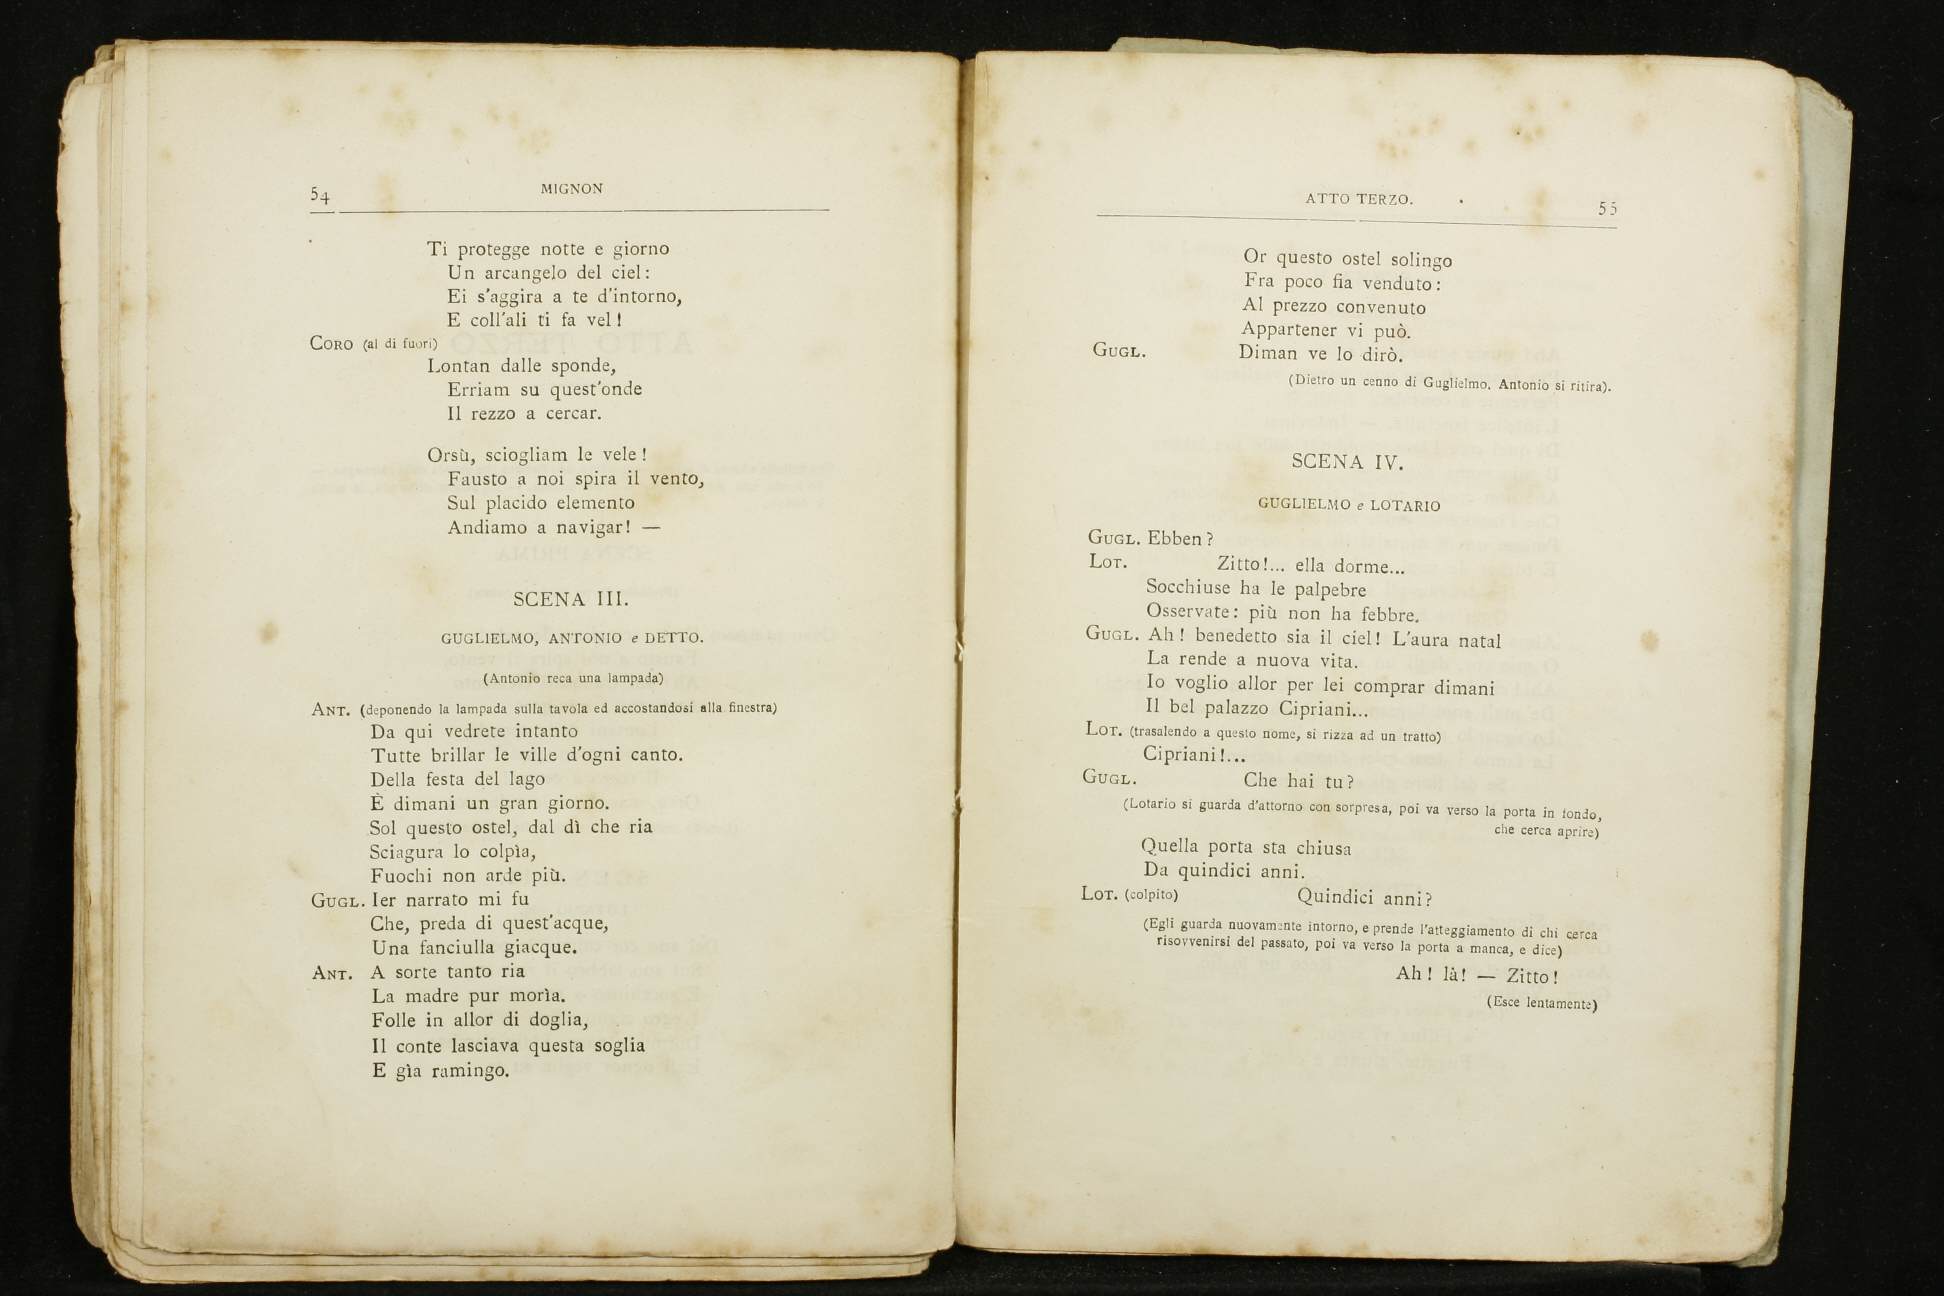 54
MIGNON
Ti protegge notte e giorno
Un arcangelo del ciel:
Ei s'aggira a te d'intorno,
E coll'ali ti fa vel!
CORO (al di fuori)
Lontan dalle sponde,
Erriam su quest'onde
Il rezzo a cercar.
Orsù, sciogliam le vele!
Fausto a noi spira il vento,
Sul placido elemento
Andiamo a navigar! —
SCENA III.
GUGLIELMO, ANTONIO e DETTO.
(Antonio reca una lampada)
ANT. (deponendo la lampada sulla tavola ed accostandosi alla finestra)
Da qui vedrete intanto
Tutte brillar le ville d'ogni canto.
Della festa del lago
È dimani un gran giorno.
Sol questo ostel, dal dì che ria
Sciagura lo colpìa,
Fuochi non arde più.
GUGL. Ier narrato mi fu
Che, preda di quest'acque,
Una fanciulla giacque.
ANT. A sorte tanto ria
La madre pur morìa.
Folle in allor di doglia,
Il conte lasciava questa soglia
E gìa ramingo.
ATTO TERZO.
55
Or questo ostel solingo
Fra poco fia venduto:
Al prezzo convenuto
Appartener vi può.
GUGL. Diman ve lo dirò.
(Dietro un cenno di Guglielmo. Antonio si ritira).
SCENA IV.
GUGLIELMO e LOTARIO
GUGL. Ebben?
LOT. Zitto!... ella dorme...
Socchiuse ha le palpebre
Osservate: più non ha febbre.
GUGL. Ah! benedetto sia il ciel! L'aura natal
La rende a nuova vita.
Io voglio allor per lei comprar dimani
Il bel palazzo Cipriani...
LOT. (trasalendo a questo nome, si rizza ad un tratto)
Cipriani!...
GUGL. Che hai tu?
(Lotario si guarda d'attorno con sorpresa, poi va verso la porta in fondo,
che cerca aprire)
Quella porta sta chiusa
Da quindici anni.
LOT. (colpito) Quindici anni?
(Egli guarda nuovamente intorno, e prende l'atteggiamento di chi cerca
risovvenirsi del passato, poi va verso la porta a manca, e dice)
Ah! là! — Zitto!
(Esce lentamente)